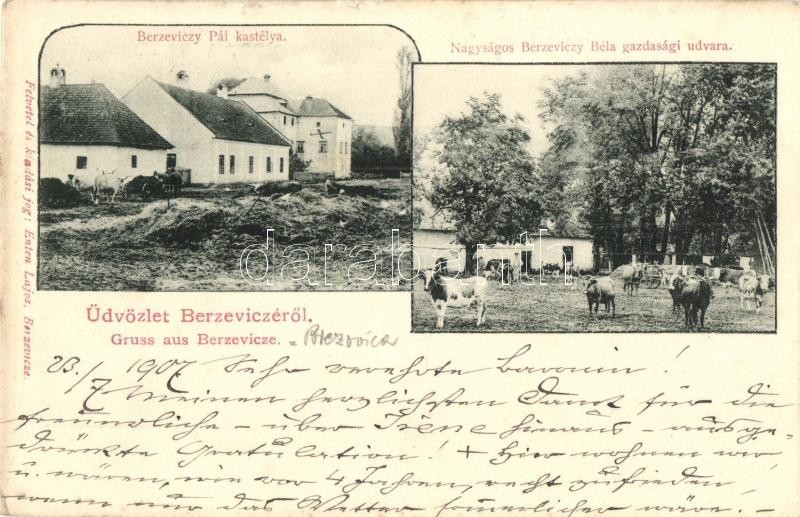 Berzeviczy Pál kastélya.
Nagyságos Berzeviczy Béla gazdasági udvara.
Felvétel és kiadási jog: Enten Lajos, Berzevicze.
darabanth
Üdvözlet Berzeviczéről.
Gruss aus Berzevicze. - Brezovica
23./7 1907 Sehr verehrte Baronin!
Meinen herzlichsten Dank für die
freundliche - über Irene hinaus - ausge-
drückte Gratulation! + Hier wohnen wir
u. wären, wie vor 4 Jahren, recht zufrieden,
wenn nur das Wetter sommerlicher wäre. -